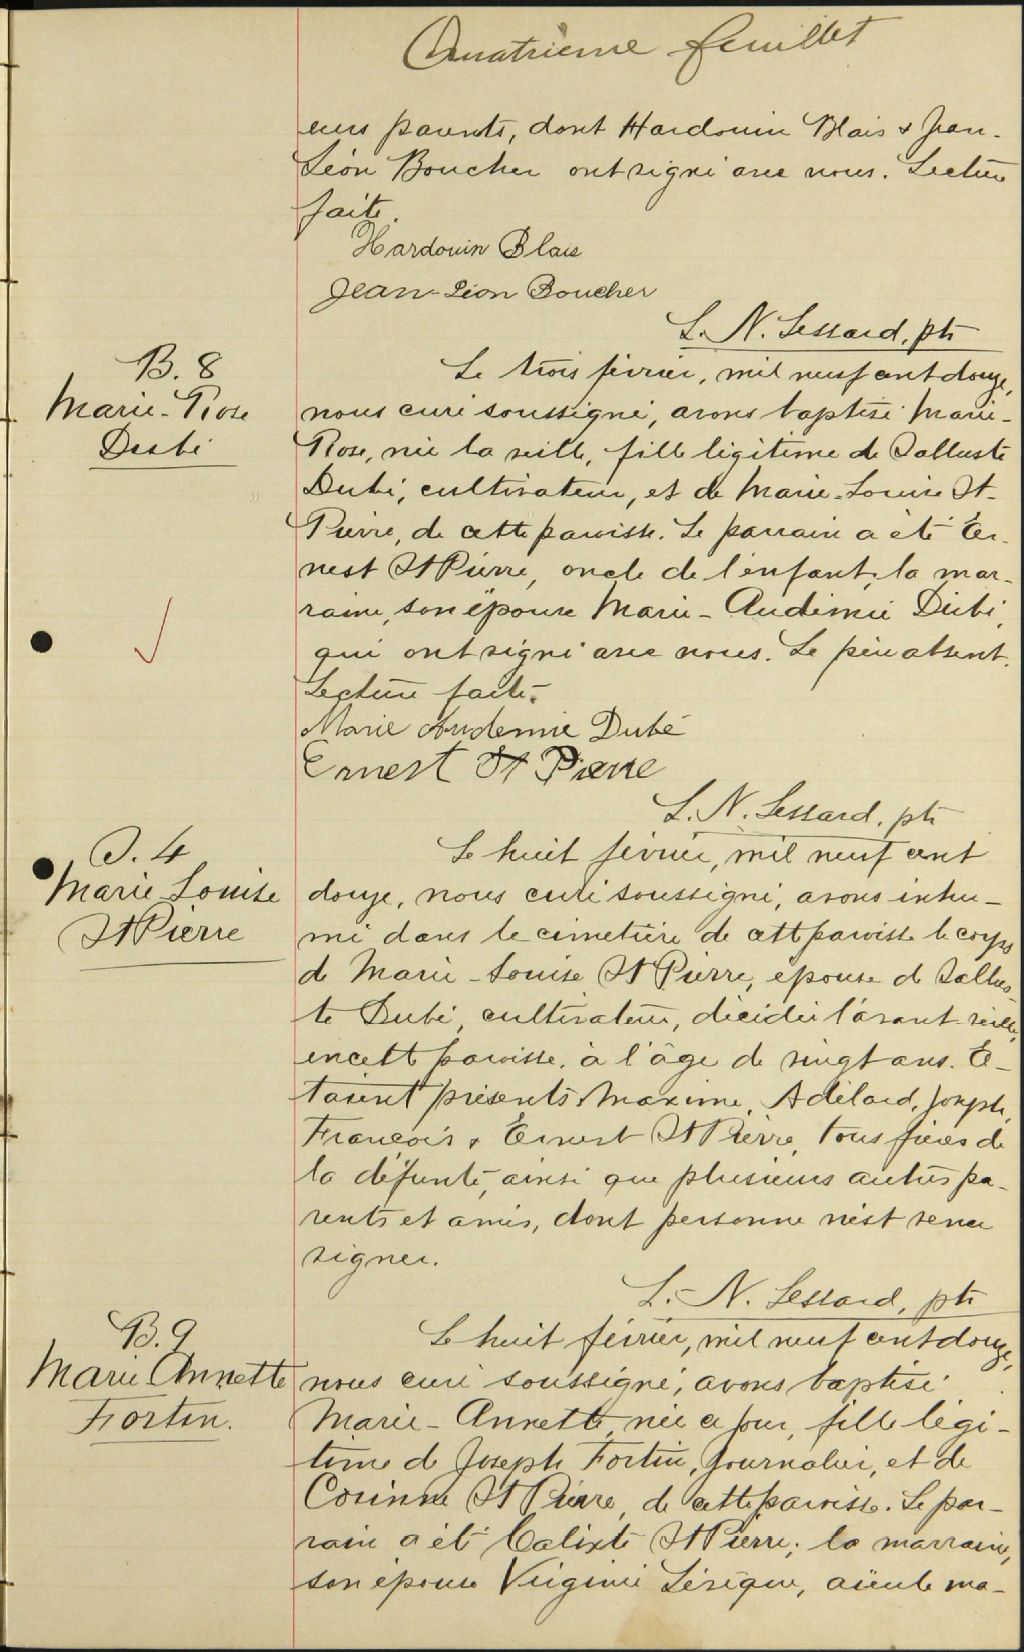 Quatrième feuillet
eurs parents, dont Hardouin Blais & Jean-
Léon Boucher ont signé avec nous. Lecture
faite.
Hardouin Blais
Jean-Léon Boucher
L. N. Lessard, ptr
B. 8
Marie-Rose
Dubé
Le trois février, mil neuf cent douze,
nous curé soussigné, avons baptisé Marie-
Rose, née la veille, fille légitime de Salluste
Dubé, cultivateur, et de Marie-Louise St-
Pierre, de cette paroisse. Le parrain a été Er-
nest St Pierre, oncle de l'enfant, la mar-
raine, son épouse Marie-Audémie Dubé,
qui ont signé avec nous. Le père absent.
Lecture faite.
Marie Audemie Dubé
Ernest St Pierre
L. N. Lessard, ptr
S. 4
Marie Louise
St Pierre
Le huit février, mil neuf cent
douze, nous curé soussigné, avons inhu-
mé dans le cimetière de cette paroisse le corps
de Marie-Louise St Pierre, épouse de Sallus-
te Dubé, cultivateur, décédée l'avant-veille,
en cette paroisse, à l'âge de vingt ans. E-
taient présents Maxime, Adélard, Joseph,
François & Ernest St Pierre, tous frères de
la défunte, ainsi que plusieurs autres pa-
rents et amis, dont personne n'est venu
signer.
L. N. Lessard, ptr
B. 9
Marie Annette
Fortin.
Le huit février, mil neuf cent douze,
nous curé soussigné, avons baptisé
Marie-Annette, née ce jour, fille légi-
time de Joseph Fortin, journalier, et de
Corinne St Pierre, de cette paroisse. Le par-
rain a été Calixte St Pierre; la marraine,
son épouse Virginie Lévêque, aïeule ma-